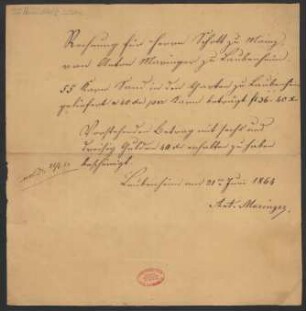 Rechnung für Herrn Schott zu Mainz
von Anton Maringer zu Laubenheim
55 Karn Sand in den Garten zu Laubenheim
geliefert a 40 per Karn beträgt f 36. 40 x
Vorstehenden Betrag mit sechs und
dreißig Gulden 40 x erhalten zu haben
bescheinigt
Laubenheim am 21ten Juni 1864
Ant. Maringer